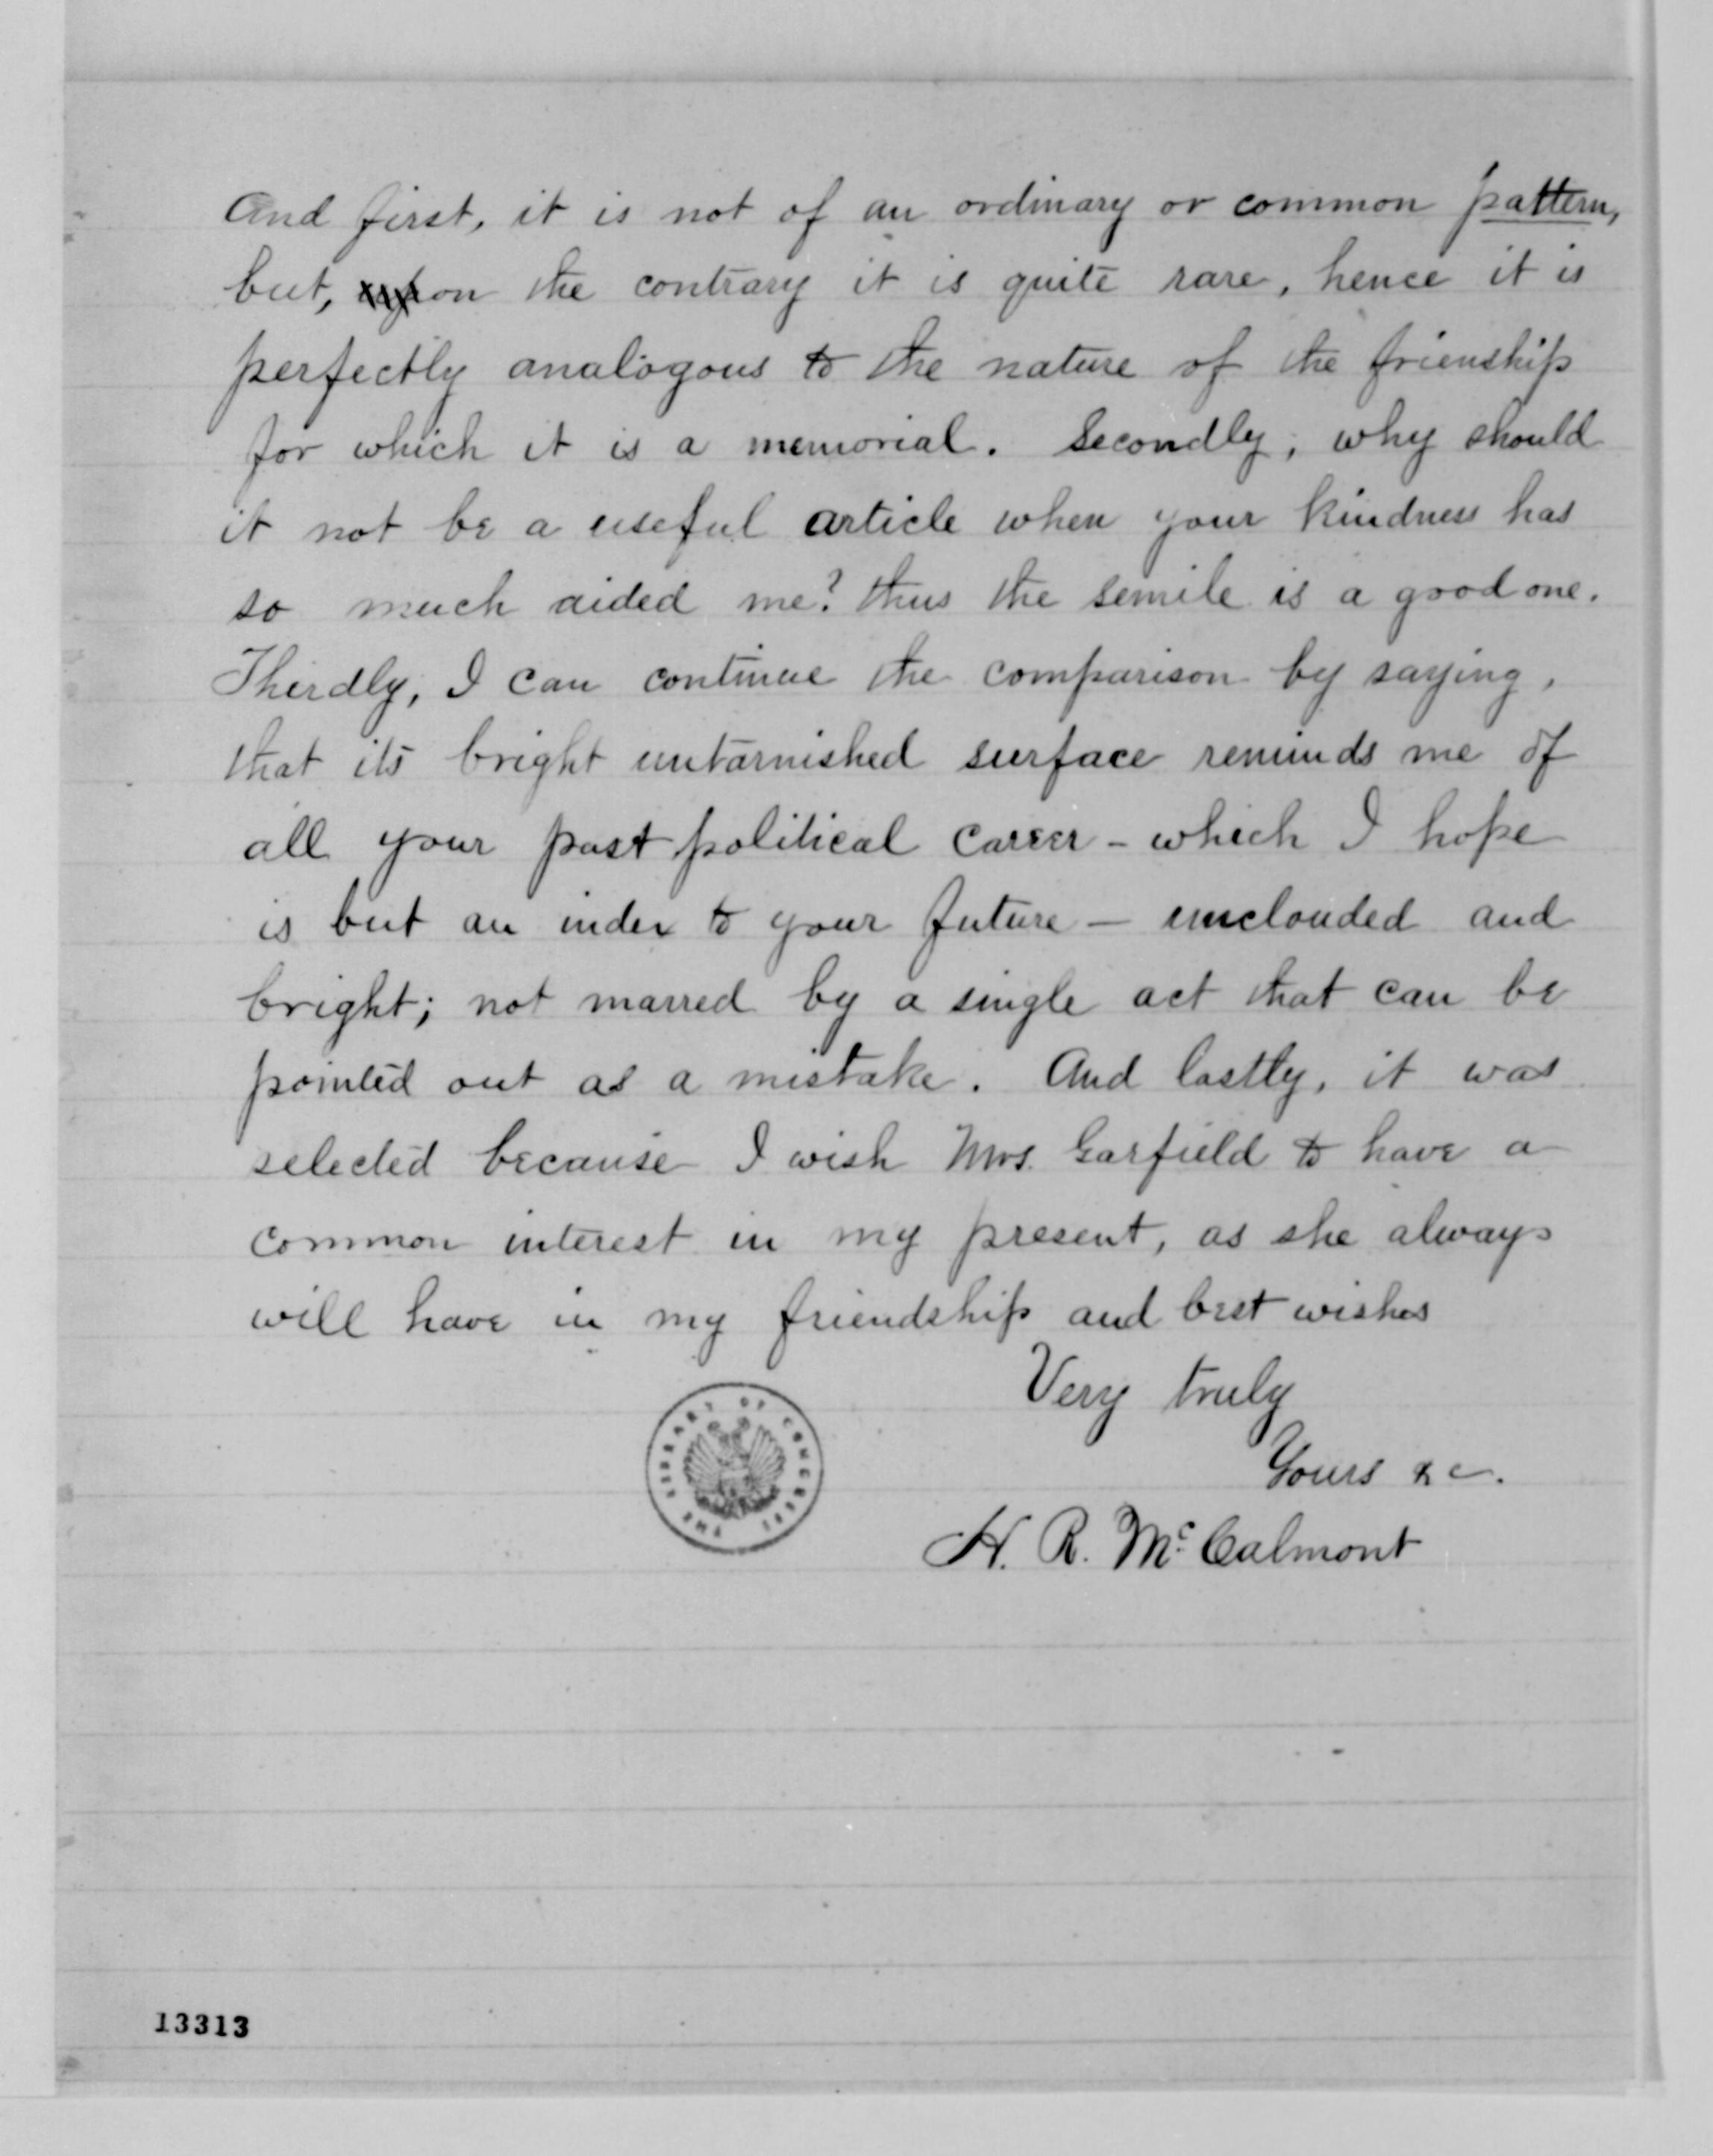 And first, it is not of an ordinary or common pattern,
but, upon the contrary it is quite rare, hence it is
perfectly analogous to the nature of the frienship
for which it is a memorial. Secondly, why should
it not be a useful article when your kindness has
so much aided me? thus the semile is a good one.
Thirdly, I can continue the comparison by saying,
that its bright untarnished surface reminds me of
all your past political career - which I hope
is but an index to your future - unclouded and
bright; not marred by a single act that can be
pointed out as a mistake. And lastly, it was
selected because I wish Mrs. Garfield to have a
common interest in my present, as she always
will have in my friendship and best wishes
Very truly
Yours &c.
H. R. McCalmont
THE LIBRARY OF CONGRESS
13313